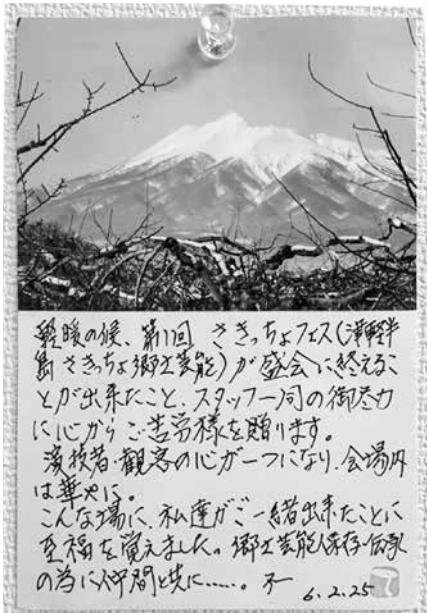 軽暖の候、第11回 さきっちょフェス(津軽半
島さきっちょ郷土芸能)が盛会に終えるこ
とが出来たこと、スタッフ一同の御尽力
に心からご苦労様を贈ります。
演技者・観客の心が一つになり、会場内
は華やに。
こんな場に、私達がご一緒出来たことに
至福を覚えました。郷土芸能保存・伝承
の為に仲間と共に……。
6.2.25